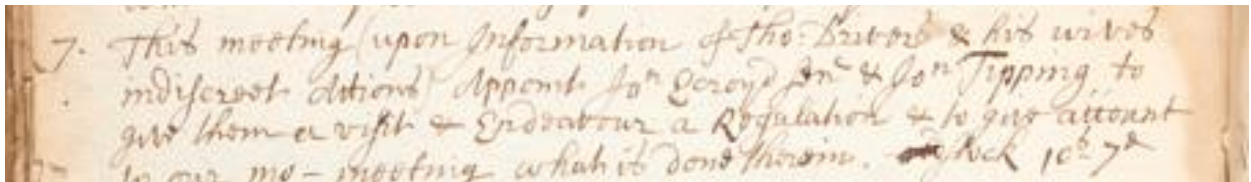 7. This meeting (upon Information of Tho: Drivers & his wives
indiscreet Actions) Appoints Jon Ecroyd Junr & Jon Tipping to
give them a visit & Endeavour a Regulation & to give account
to our mo- meeting what is done therein. 10th 7th